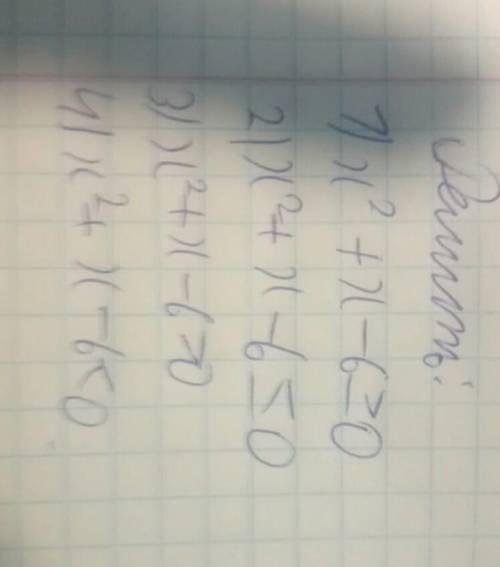 Решить:
1) x² + x - 6 ≥ 0
2) x² + x - 6 ≤ 0
3) x² + x - 6 > 0
4) x² + x - 6 < 0